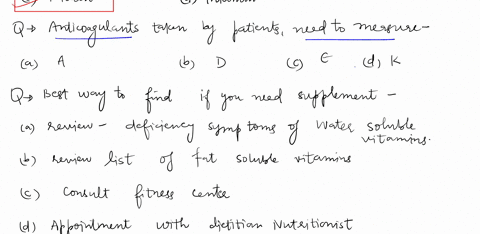 Q→ Anticoagulants taken by patients, need to measure-
(a) A (b) D (c) E (d) K
Q→ Best way to find if you need supplement -
(a) review - deficiency symptoms of water soluble vitamins.
(b) review list of fat soluble vitamins
(c) Consult fitness centre
(d) Appointment with dietitian Nutritionist